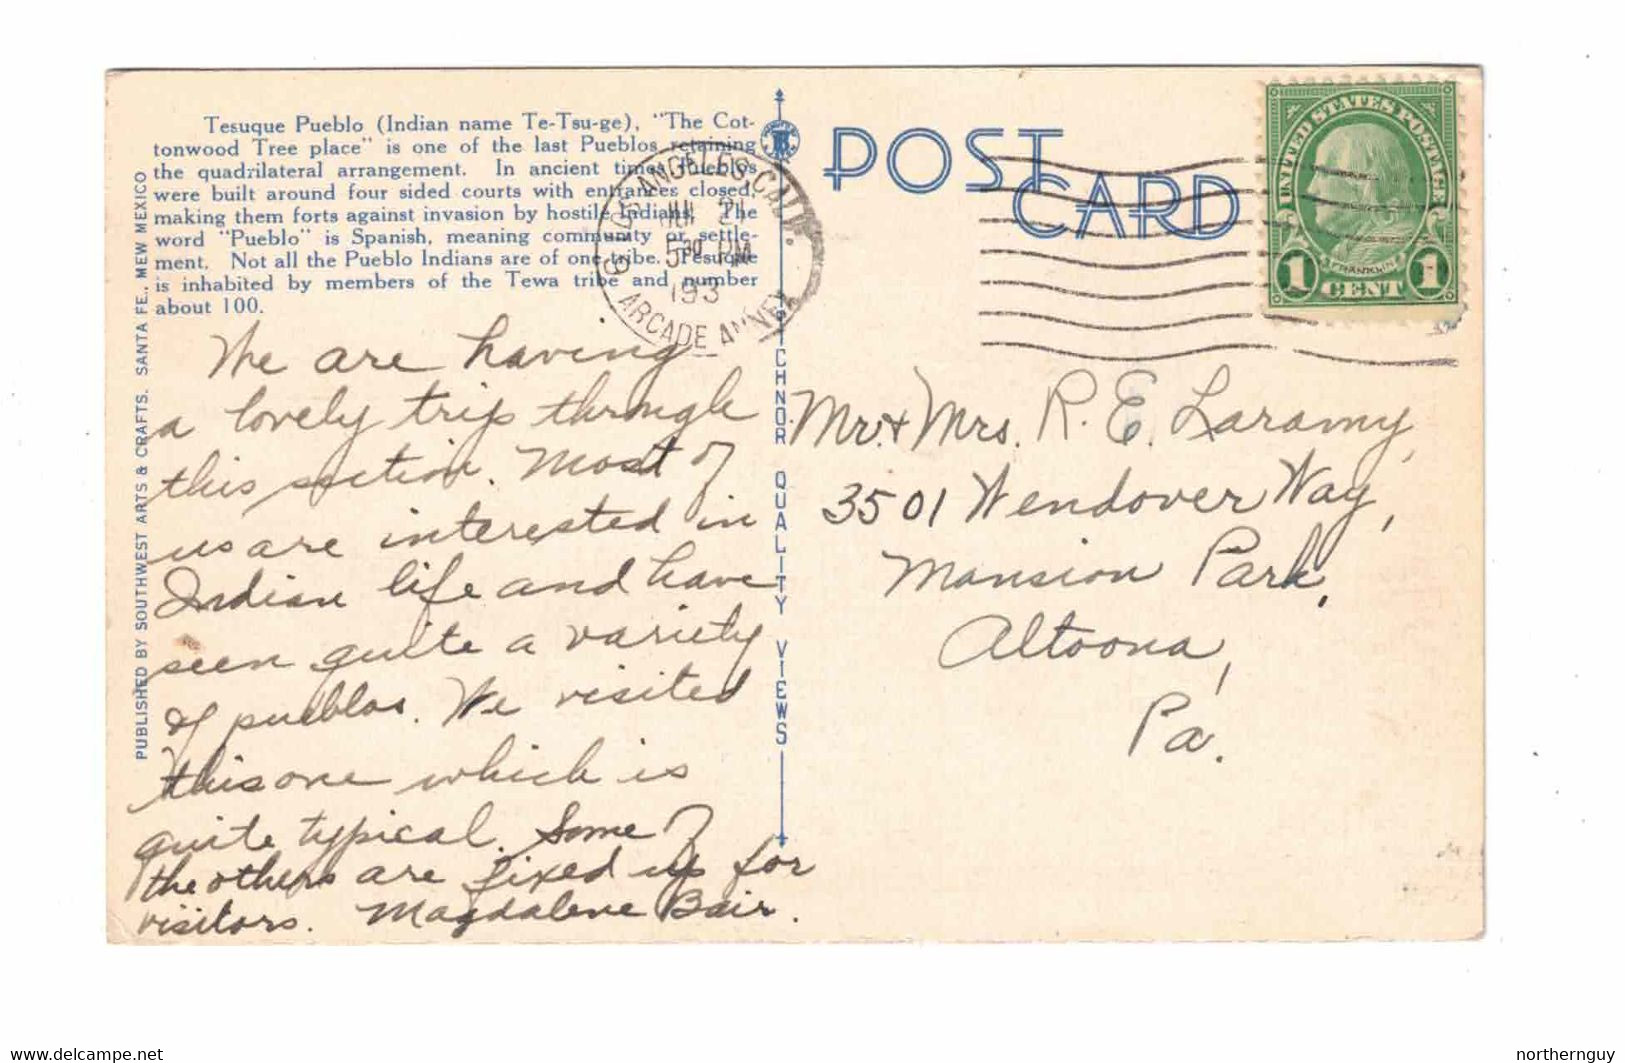 Tesuque Pueblo (Indian name Te-Tsu-ge), "The Cot-
tonwood Tree place" is one of the last Pueblos retaining
the quadrilateral arrangement. In ancient times Pueblos
were built around four sided courts with entrances closed,
making them forts against invasion by hostile Indians. The
word "Pueblo" is Spanish, meaning community or settle-
ment. Not all the Pueblo Indians are of one tribe. Tesuque
is inhabited by members of the Tewa tribe and number
about 100.
PUBLISHED BY SOUTHWEST ARTS & CRAFTS. SANTA FE, MEW MEXICO
We are having
a lovely trip through
this section. Most of
us are interested in
Indian life and have
seen quite a variety
of pueblos. We visited
this one which is
quite typical. Some of
the others are fixed up for
visitors. Magdalene Bair.
ANGELES, CALIF.
JUL 21
5 30 PM
193
ARCADE ANNEX
TICHNOR QUALITY VIEWS
POST CARD
UNITED STATES POSTAGE
FRANKLIN
1 CENT 1
Mr. & Mrs. R. E. Laramy,
3501 Wendover Way,
Mansion Park,
Altoona,
Pa.
www.delcampe.net
northernguy